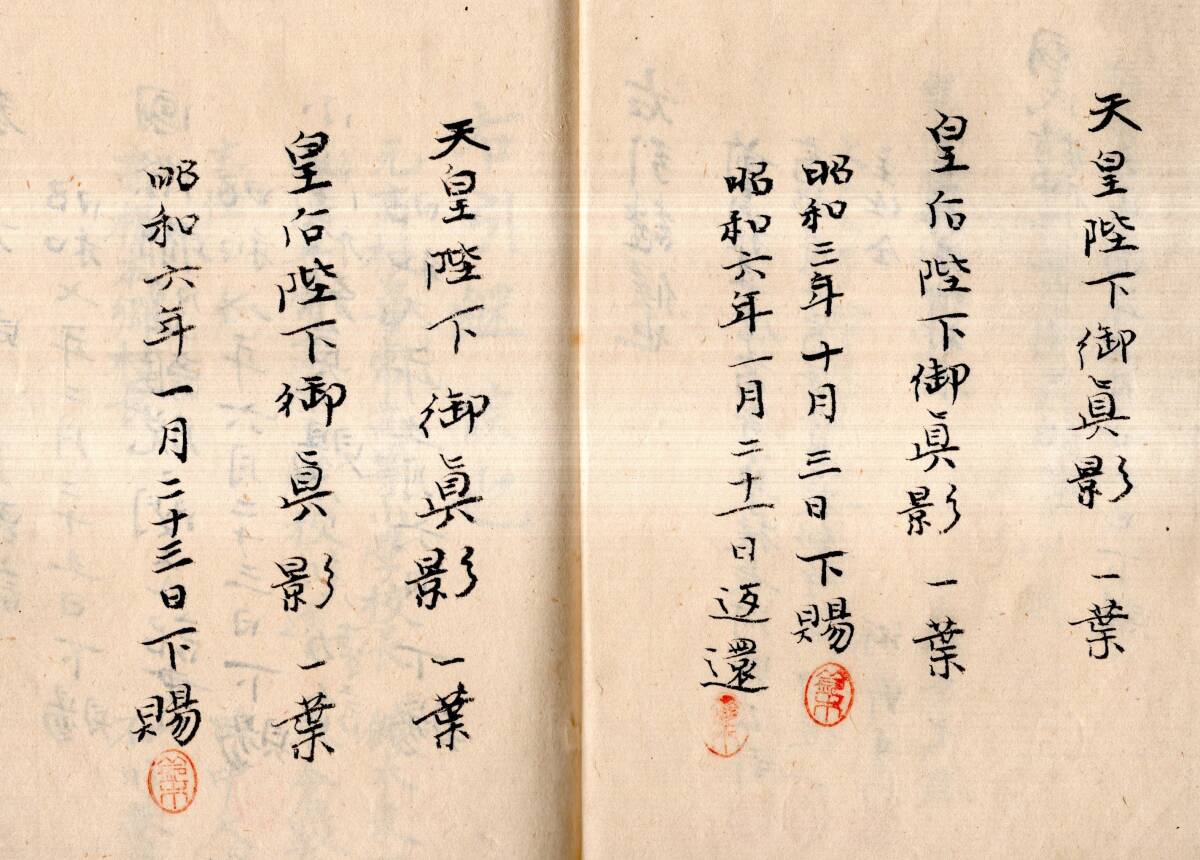 天皇陛下御眞影一葉
皇后陛下御眞影一葉
昭和三年十月三日下賜
昭和六年一月二十一日返還
天皇陛下御眞影一葉
皇后陛下御眞影一葉
昭和六年一月二十三日下賜